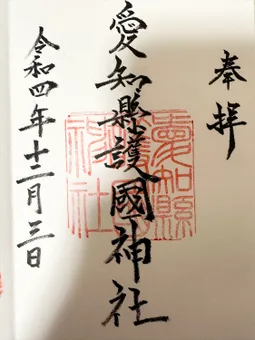 奉拝
愛知縣護國神社
令和四年十二月三日
愛知縣護國神社